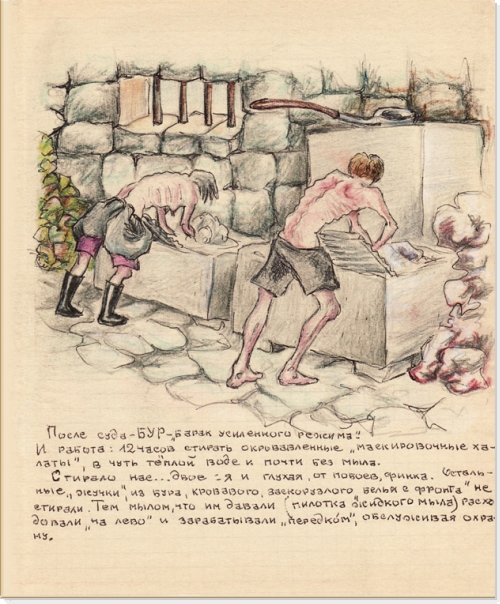 После суда-БУР-„барак усиленного режима".
И работа: 12 часов стирать окровавленные „маскировочные ха-
латы", в чуть тёплой воде и почти без мыла.
Стирало нас...двое :я и глухая, от побоев, финка. Осталь-
ные, „жучки" из бура, кровавого, заскорузлого белья с фронта" не
стирали. Тем мылом, что им давали (пилотка жидкого мыла) расхо
довали „на лево" и зарабатывали „передко́м", обслуживая охра-
ну.